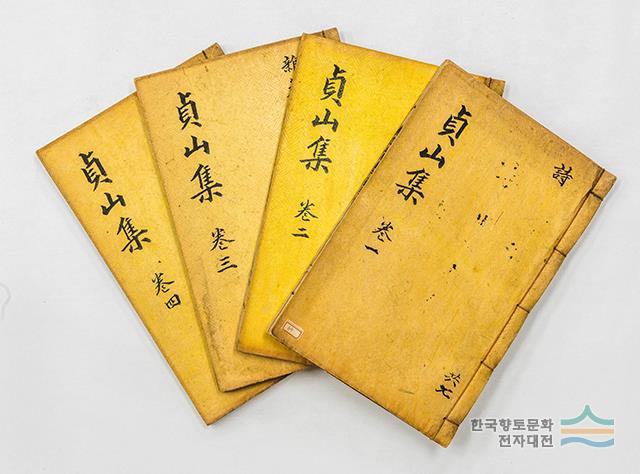 貞山集 卷一
詩
共七
貞山集 卷二
雜
貞山集 卷三
貞山集 卷四
한국향토문화
전자대전